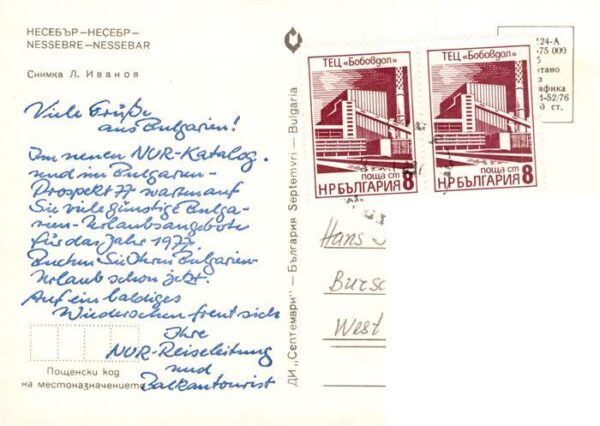 НЕСЕБЪР—НЕСЕБР—
NESSEBRE—NESSEBAR
Снимка Л. Иванов
Viele Grüße
aus Bulgarien!
Im neuen NUR-Katalog
und im Bulgarien-
Prospekt 77 warten auf
Sie viele günstige Bulga-
rien-Urlaubsangebote
für das Jahr 1977.
Buchen Sie Ihren Bulgarien-
Urlaub schon jetzt.
Auf ein baldiges
Wiedersehen freut sich
Ihre
NUR-Reiseleitung
und
Balkantourist
Пощенски код
на местоназначението
ДИ „Септември" — България Septemvri — Bulgaria
ТЕЦ «Бобовдол»
поща ст
НРБЪЛГАРИЯ 8
ТЕЦ «Бобовдол»
поща ст
НРБЪЛГАРИЯ 8
24-А
-75 009
тано
афика
1-52/76
0 ст.
Hans
Bursc
West